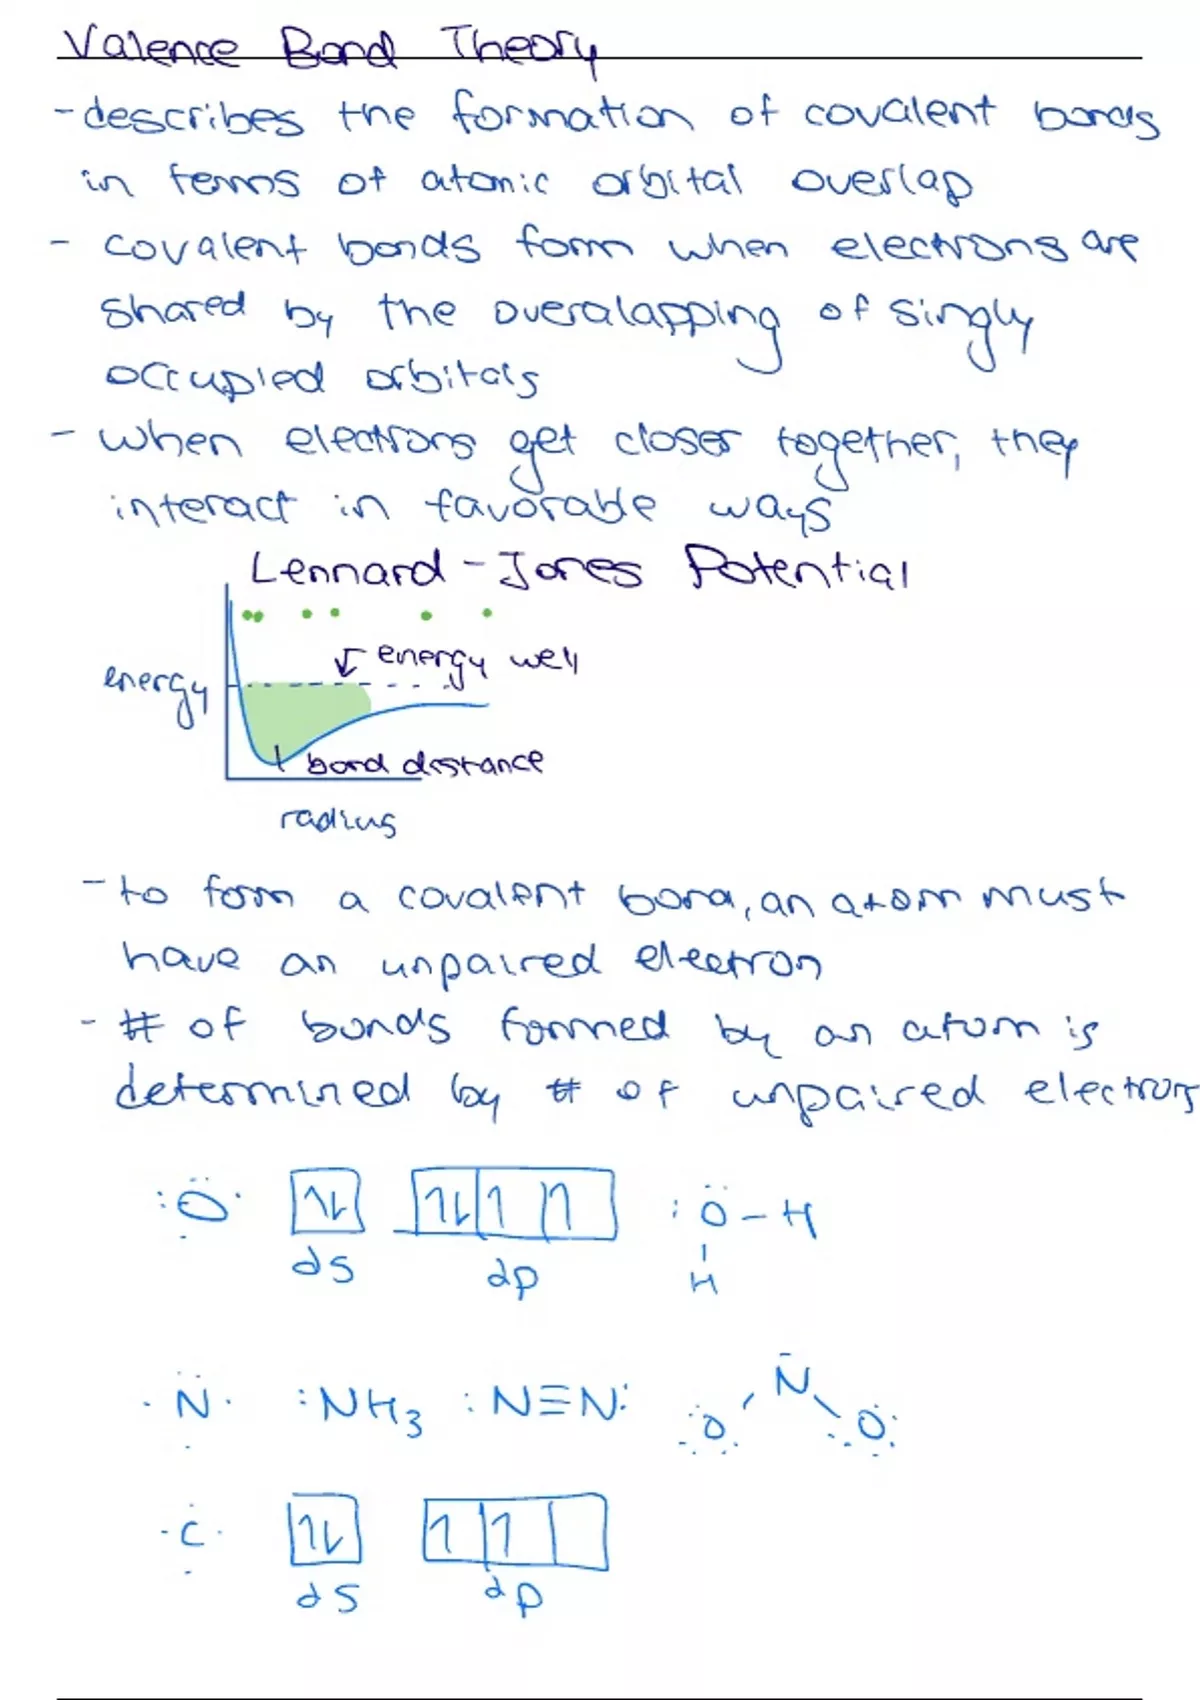 Valence Bond Theory
- describes the formation of covalent bonds
in terms of atomic orbital overlap
- covalent bonds form when electrons are
shared by the overalapping of singly
occupied orbitals
- when electrons get closer together, they
interact in favorable ways
Lennard - Jones Potential
energy well
energy
bond distance
radius
- to form a covalent bond, an atom must
have an unpaired electron
- # of bonds formed by an atom is
determined by # of unpaired electrons
:Ö· ↑↓ ↑↓ ↑ ↑ :Ö-H
2s 2p H
·N· :NH3 :N≡N: N
O O
·C· ↑↓ ↑ ↑
2s 2p